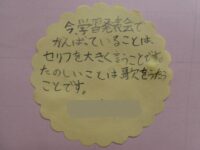 今学習発表会で
がんばっていることは、
セリフを大きく言うことです。
たのしいことは歌をうたう
ことです。